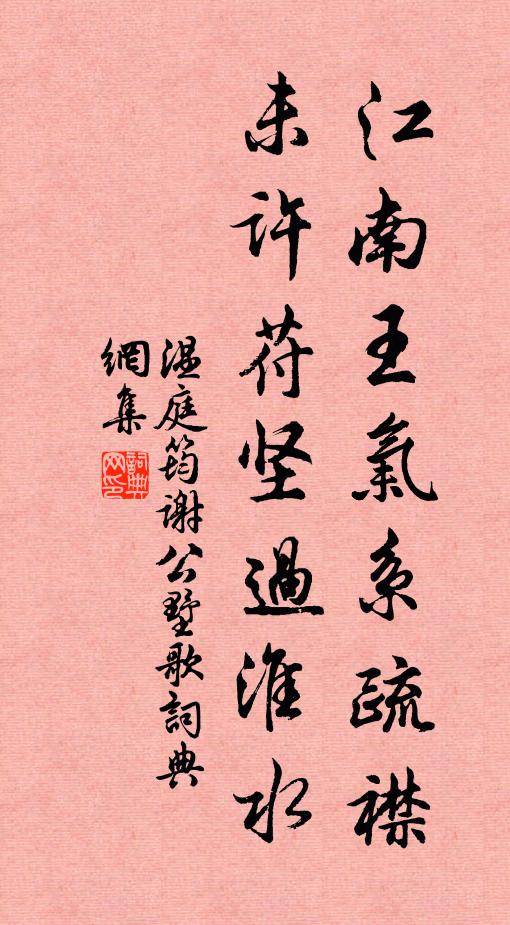 江南王氣系疏襟
未许苻坚過淮水
温庭筠谢公墅歌詞典
網集
詞典網印